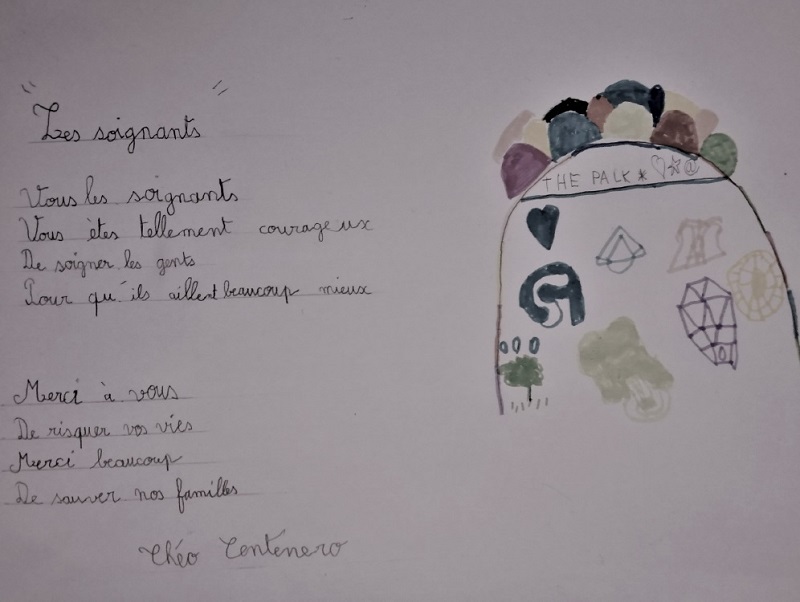 " Les soignants "
Vous les soignants
Vous êtes tellement courageux
De soigner les gents
Pour qu'ils aillent beaucoup mieux
Merci à vous
De risquer vos vies
Merci beaucoup
De sauver nos familles
Théo Centenero
THE PALK *